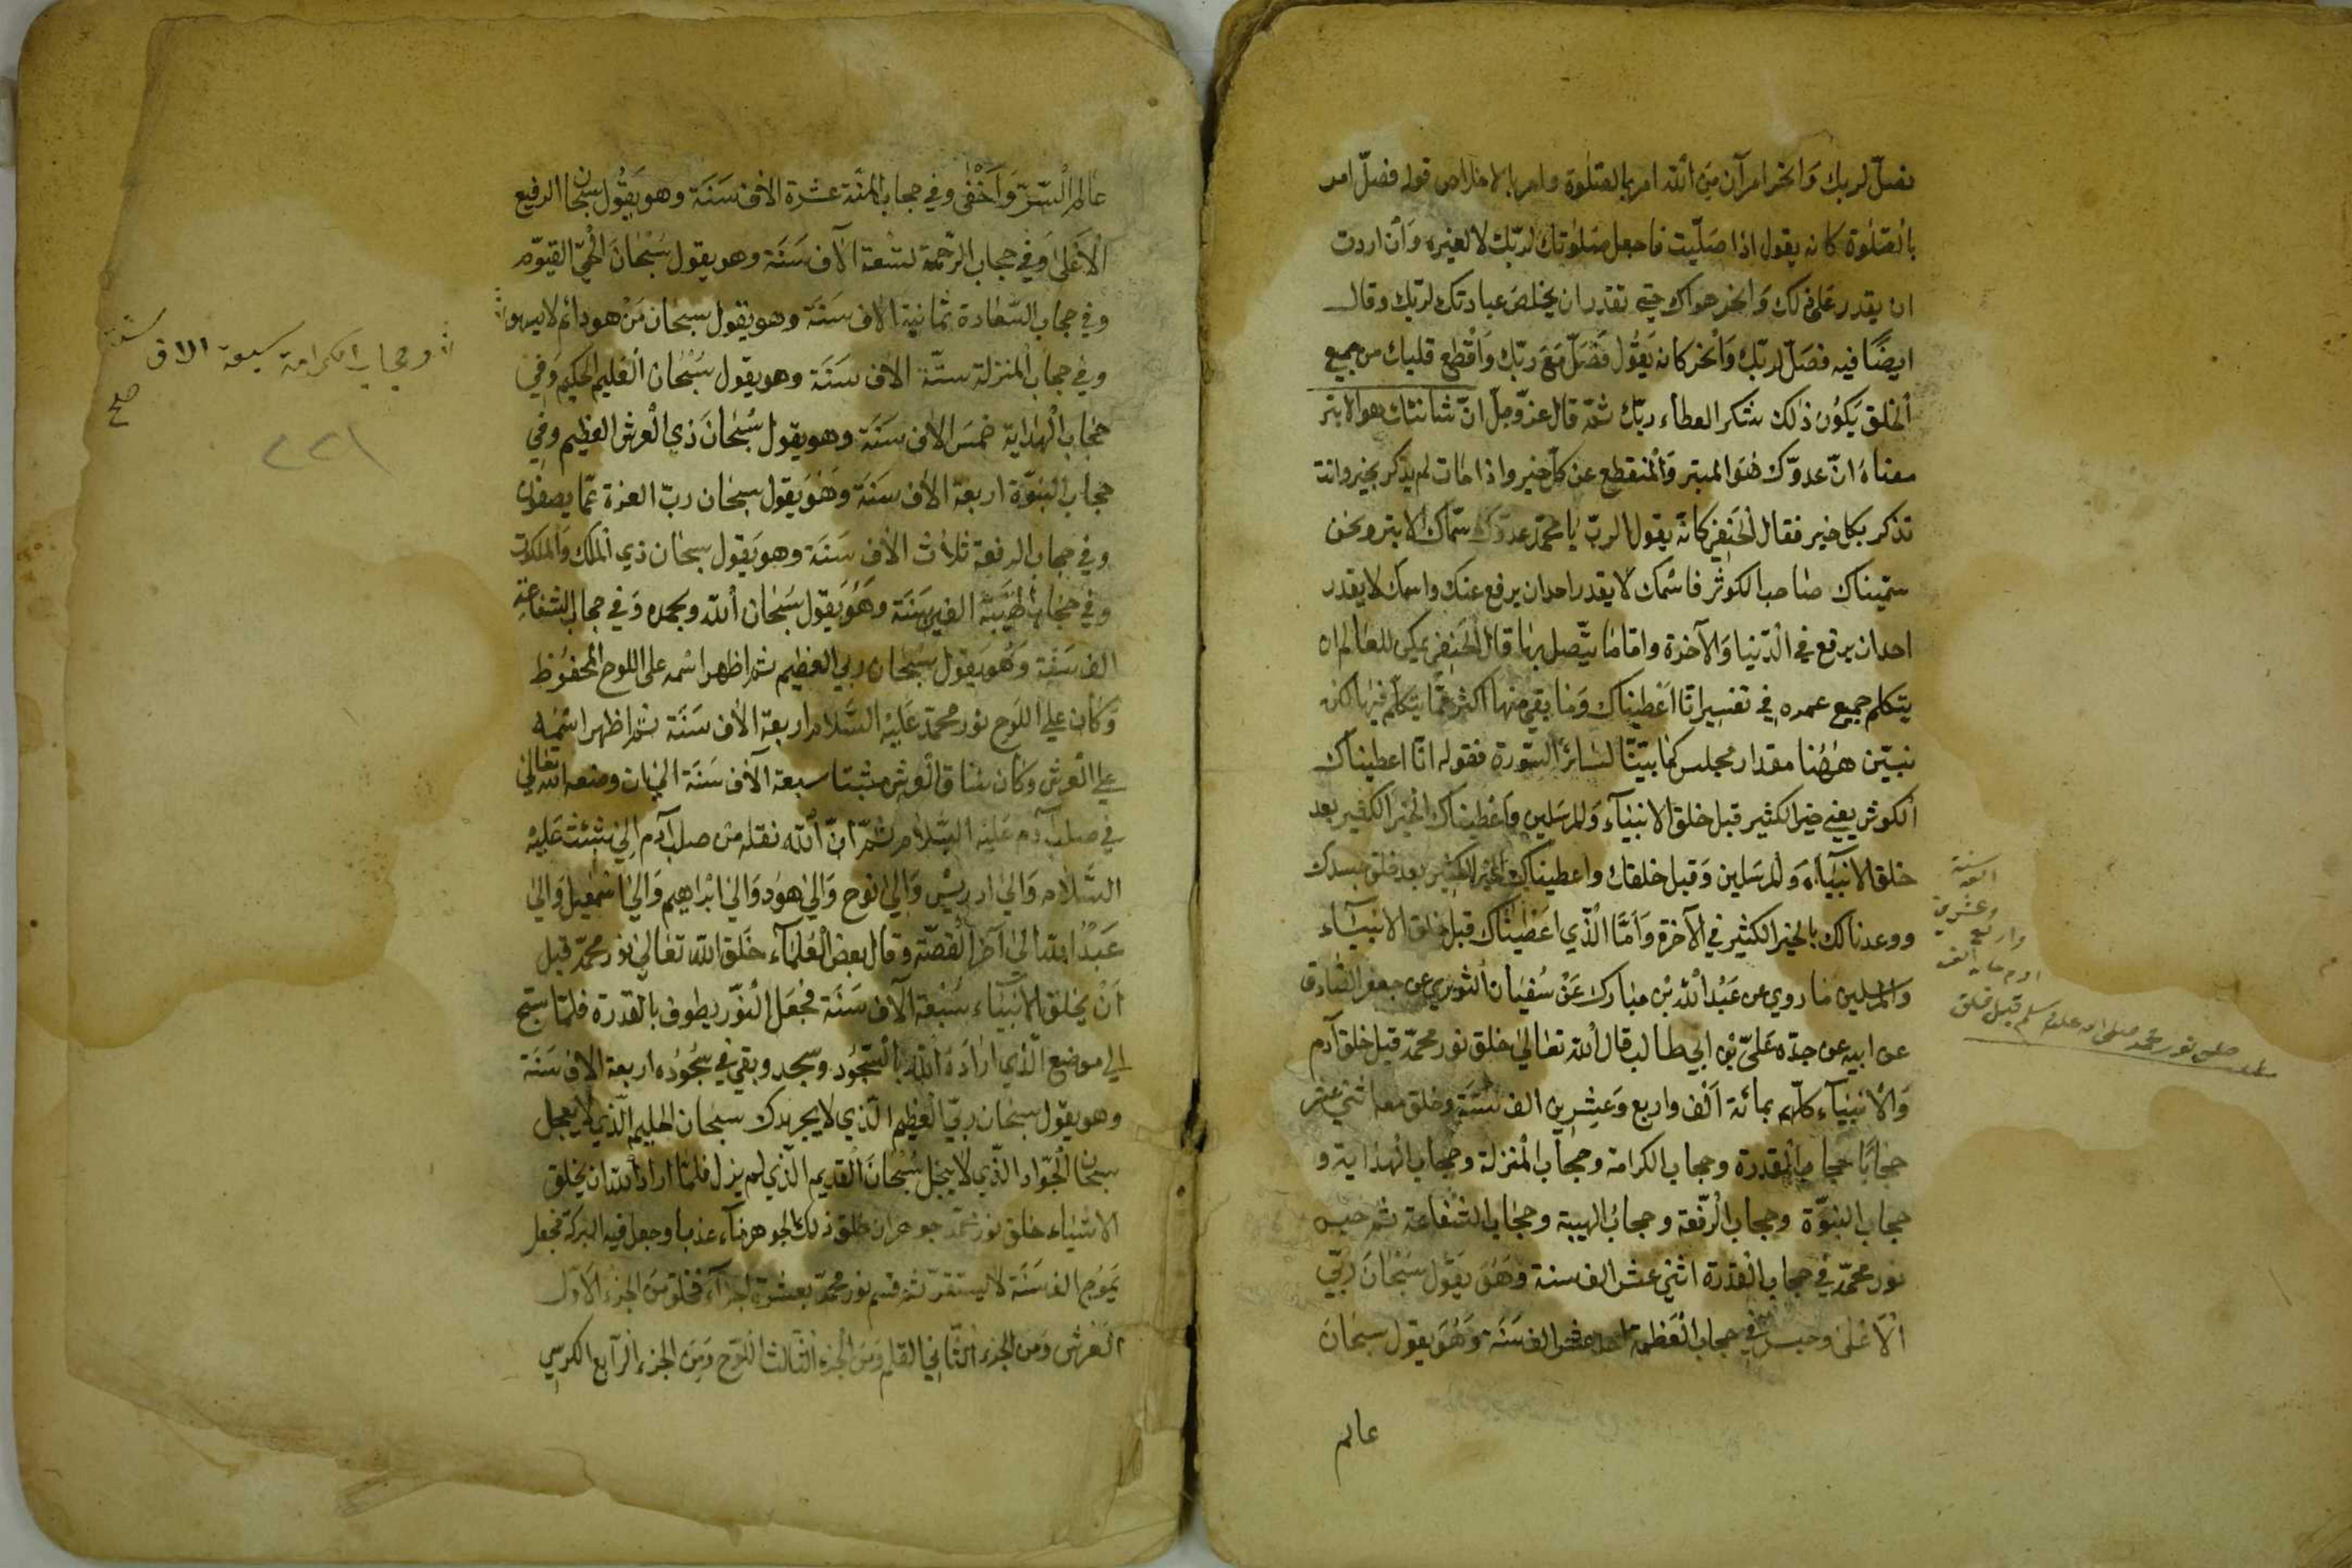 فصل لربك وانحر امرآن من الله امر بالصلوة وامر بالاخلاص قوله فصل امر
بالصلوة كانه يقول اذا صليت فاجعل صلوتك لربك لا لغيره وان اردت
ان يقدر على ذلك وانحر هواك حتى تقدر ان يخلص عبادتك لربك وقال
ايضا فيه فصل لربك وانحر كانه يقول فصل مع ربك واقطع قلبك من جميع
الخلق يكون ذلك شكر العطاء ربك ثم قال عز وجل ان شانئك هو الابتر
معناه ان عدوك هو المبتر والمنقطع عن كل خير واذا مات لم يذكر بخير وانت
تذكر بكل خير فقال كانه يقول الرب يا محمد عدوك سماك الابتر ونحن
سميناك صاحب الكوثر فاسمك لا يقدر احد ان يرفع عنك واسمك لا يقدر
احد ان يرفع في الدنيا والآخرة واما ما يتصل بها قال يمكن للعالم ان
يتكلم جميع عمره في تفسير انا اعطيناك وما بقي منها اكثر مما يتكلم فيها لكن
نبين ههنا مقدار مجلس كما بينا لسائر السورة فقوله انا اعطيناك
الكوثر يعني خير الكثير قبل خلق الانبياء والمرسلين واعطيناك الخير الكثير بعد
خلق الانبياء والمرسلين وقبل خلقك واعطيناك الخير الكثير بعد خلق جسدك
ووعدناك بالخير الكثير في الآخرة واما الذي اعطيناك قبل خلق الانبياء
والمرسلين ما روي عن عبد الله بن مبارك عن سفيان الثوري عن جعفر الصادق
عن ابيه عن جده علي بن ابي طالب قال الله تعالى خلق نور محمد قبل خلق آدم
والانبياء كلهم بمائة الف واربع وعشرين الف سنة وخلق معه اثني عشر
حجابا حجاب القدرة وحجاب الكرامة وحجاب المنزلة وحجاب الهداية و
حجاب النبوة وحجاب الرفعة وحجاب الهيبة وحجاب الشفاعة ثم حبس
نور محمد في حجاب القدرة اثني عشر الف سنة وهو يقول سبحان ربي
الاعلى وحبس في حجاب العظمة احد عشر الف سنة وهو يقول سبحان
عالم
خلق نور محمد صلى الله عليه وسلم قبل خلق
ادم بمايه الف
واربع
وعشرين
الف
سنة
عالم السر واخفى وفي حجاب المنة عشرة الاف سنة وهو يقول سبحان الرفيع
الاعلى وفي حجاب الرحمة تسعة آلاف سنة وهو يقول سبحان الحي القيوم
وفي حجاب السعادة ثمانية الاف سنة وهو يقول سبحان من هو دائم لا يسهو
وفي حجاب المنزلة ستة الاف سنة وهو يقول سبحان العليم الحكيم وفي
حجاب الهداية خمس الاف سنة وهو يقول سبحان ذي العرش العظيم وفي
حجاب النبوة اربعة الاف سنة وهو يقول سبحان رب العزة عما يصفون
وفي حجاب الرفعة ثلاث الاف سنة وهو يقول سبحان ذي الملك والملكوت
وفي حجاب الفين سنة وهو يقول سبحان الله وبحمده وفي حجاب الشفاعة
الف سنة وهو يقول سبحان ربي العظيم ثم اظهر اسمه على اللوح المحفوظ
وكان على اللوح نور محمد عليه السلام اربعة الاف سنة ثم اظهر اسمه
على العرش وكان ساق العرش مثبتا سبعة الاف سنة الى ان وضعه الله تعالى
في صلب آدم عليه السلام ثم ان الله نقله من صلب آدم الى شئت عليه
السلام والى ادريس والى نوح والى هود والى ابراهيم والى اسمعيل والى
عبد الله الى آخر القصة وقال بعض العلماء خلق الله تعالى نور محمد قبل
ان يخلق الانبياء سبعة آلاف سنة فجعل النور يطوف بالقدرة فلما سبح
الى موضع الذي اراده الله بالسجود وسجد وبقي في سجوده اربعة الاف سنة
وهو يقول سبحان ربي العظيم الذي لا سبحان الحليم الذي لا يعجل
سبحان الجواد الذي لا يبخل سبحان القديم الذي لم يزل فلما اراد الله ان يخلق
الاشياء خلق نور محمد جوهر ان خلق ذلك الجوهر ماء عذبا وجعل فيه البركة فجعل
يموج الف سنة لا يستقر ثم قسم نور محمد بعشرة اجزاء فخلق من الجزء الاول
العرش ومن الجزء الثاني القلم ومن الجزء الثالث اللوح ومن الجزء الرابع الكرسي
وحجاب الكرامة سبعة الاف سنة
صح
٢٢١